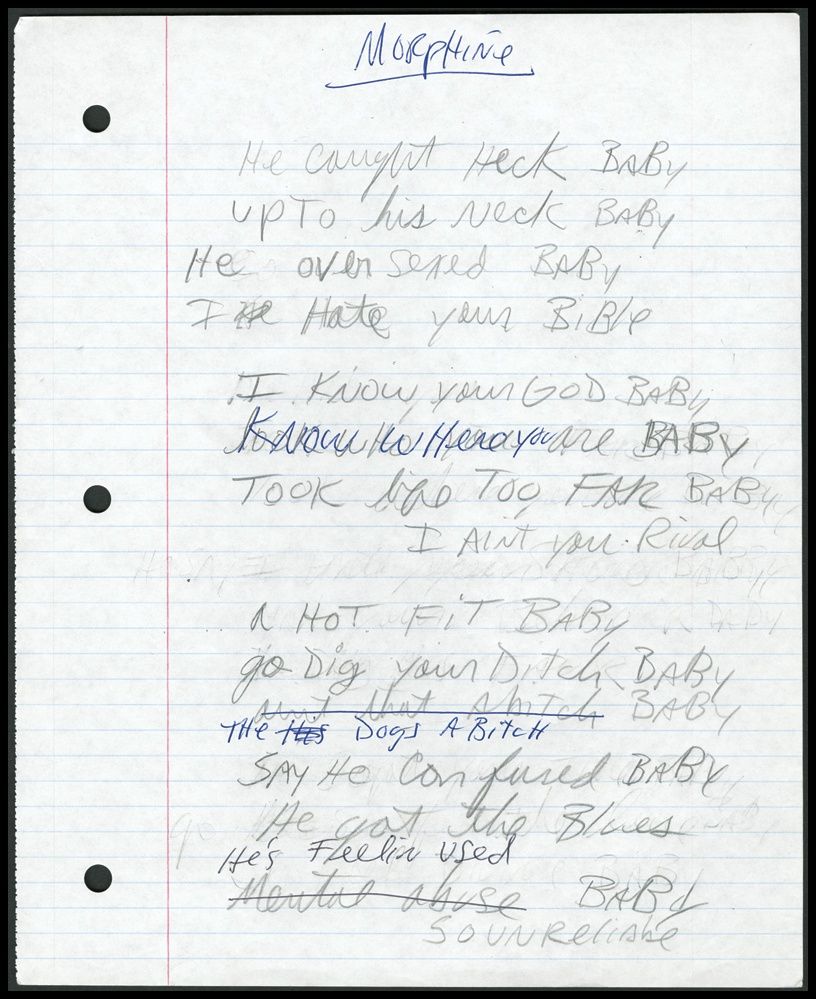 MORPHINE
He caught Heck BABy
UPTO his Neck BABy
He over sexed BABy
I Hate your BiBle
I Know your GOD BABy
Know where you are BABy
TOOK life TOO FAR BABy
I AiNt your Rival
A HOT FiT BABy
go Dig your Ditch BABy
aint that A bitch BABy
THe His Dogs A BitcH
SAy He Confused BABy
He got the Blues
He's Feelin Used
Mental abuse BABy
SOUNReliable